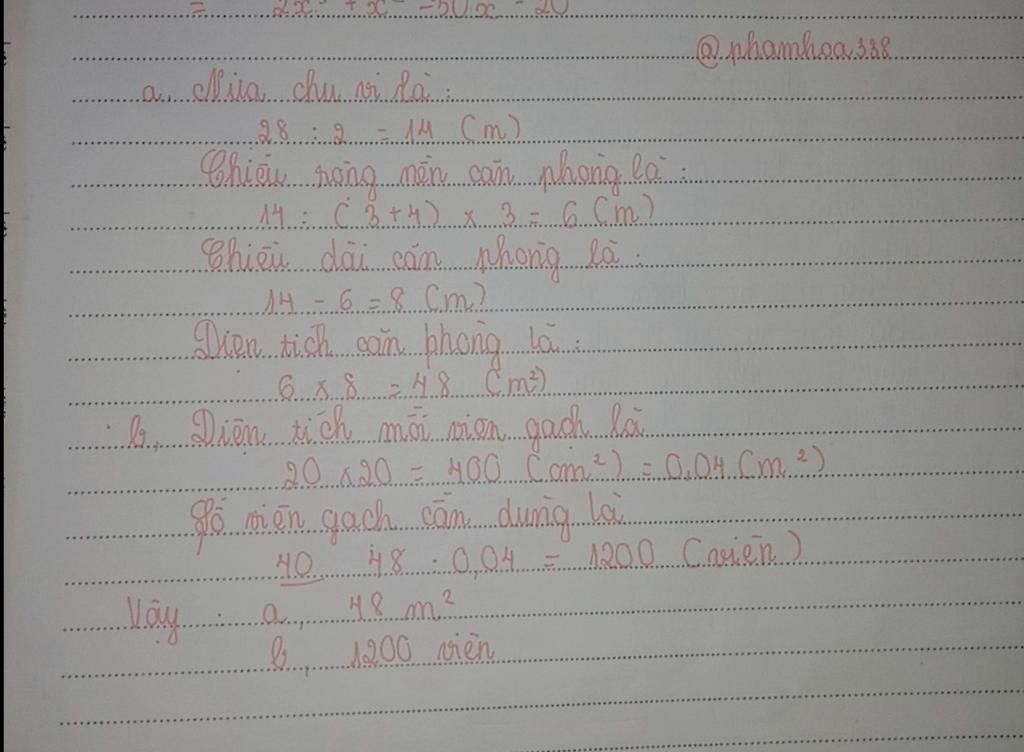 = 2x³ + x² - 50x - 20
@phamhoa338
a, Nửa chu vi là :
28 : 2 = 14 (m)
Chiều rộng nền căn phòng là :
14 : ( 3+4) x 3 = 6 (m)
Chiều dài căn phòng là :
14 - 6 = 8 (m)
Diện tích căn phòng là :
6 x 8 = 48 (m²)
b, Diện tích mỗi viên gạch là
20 x 20 = 400 (cm²) = 0,04 (m²)
Số viên gạch cần dùng là
40 48 : 0,04 = 1200 (viên)
Vậy : a, 48 m²
b, 1200 viên